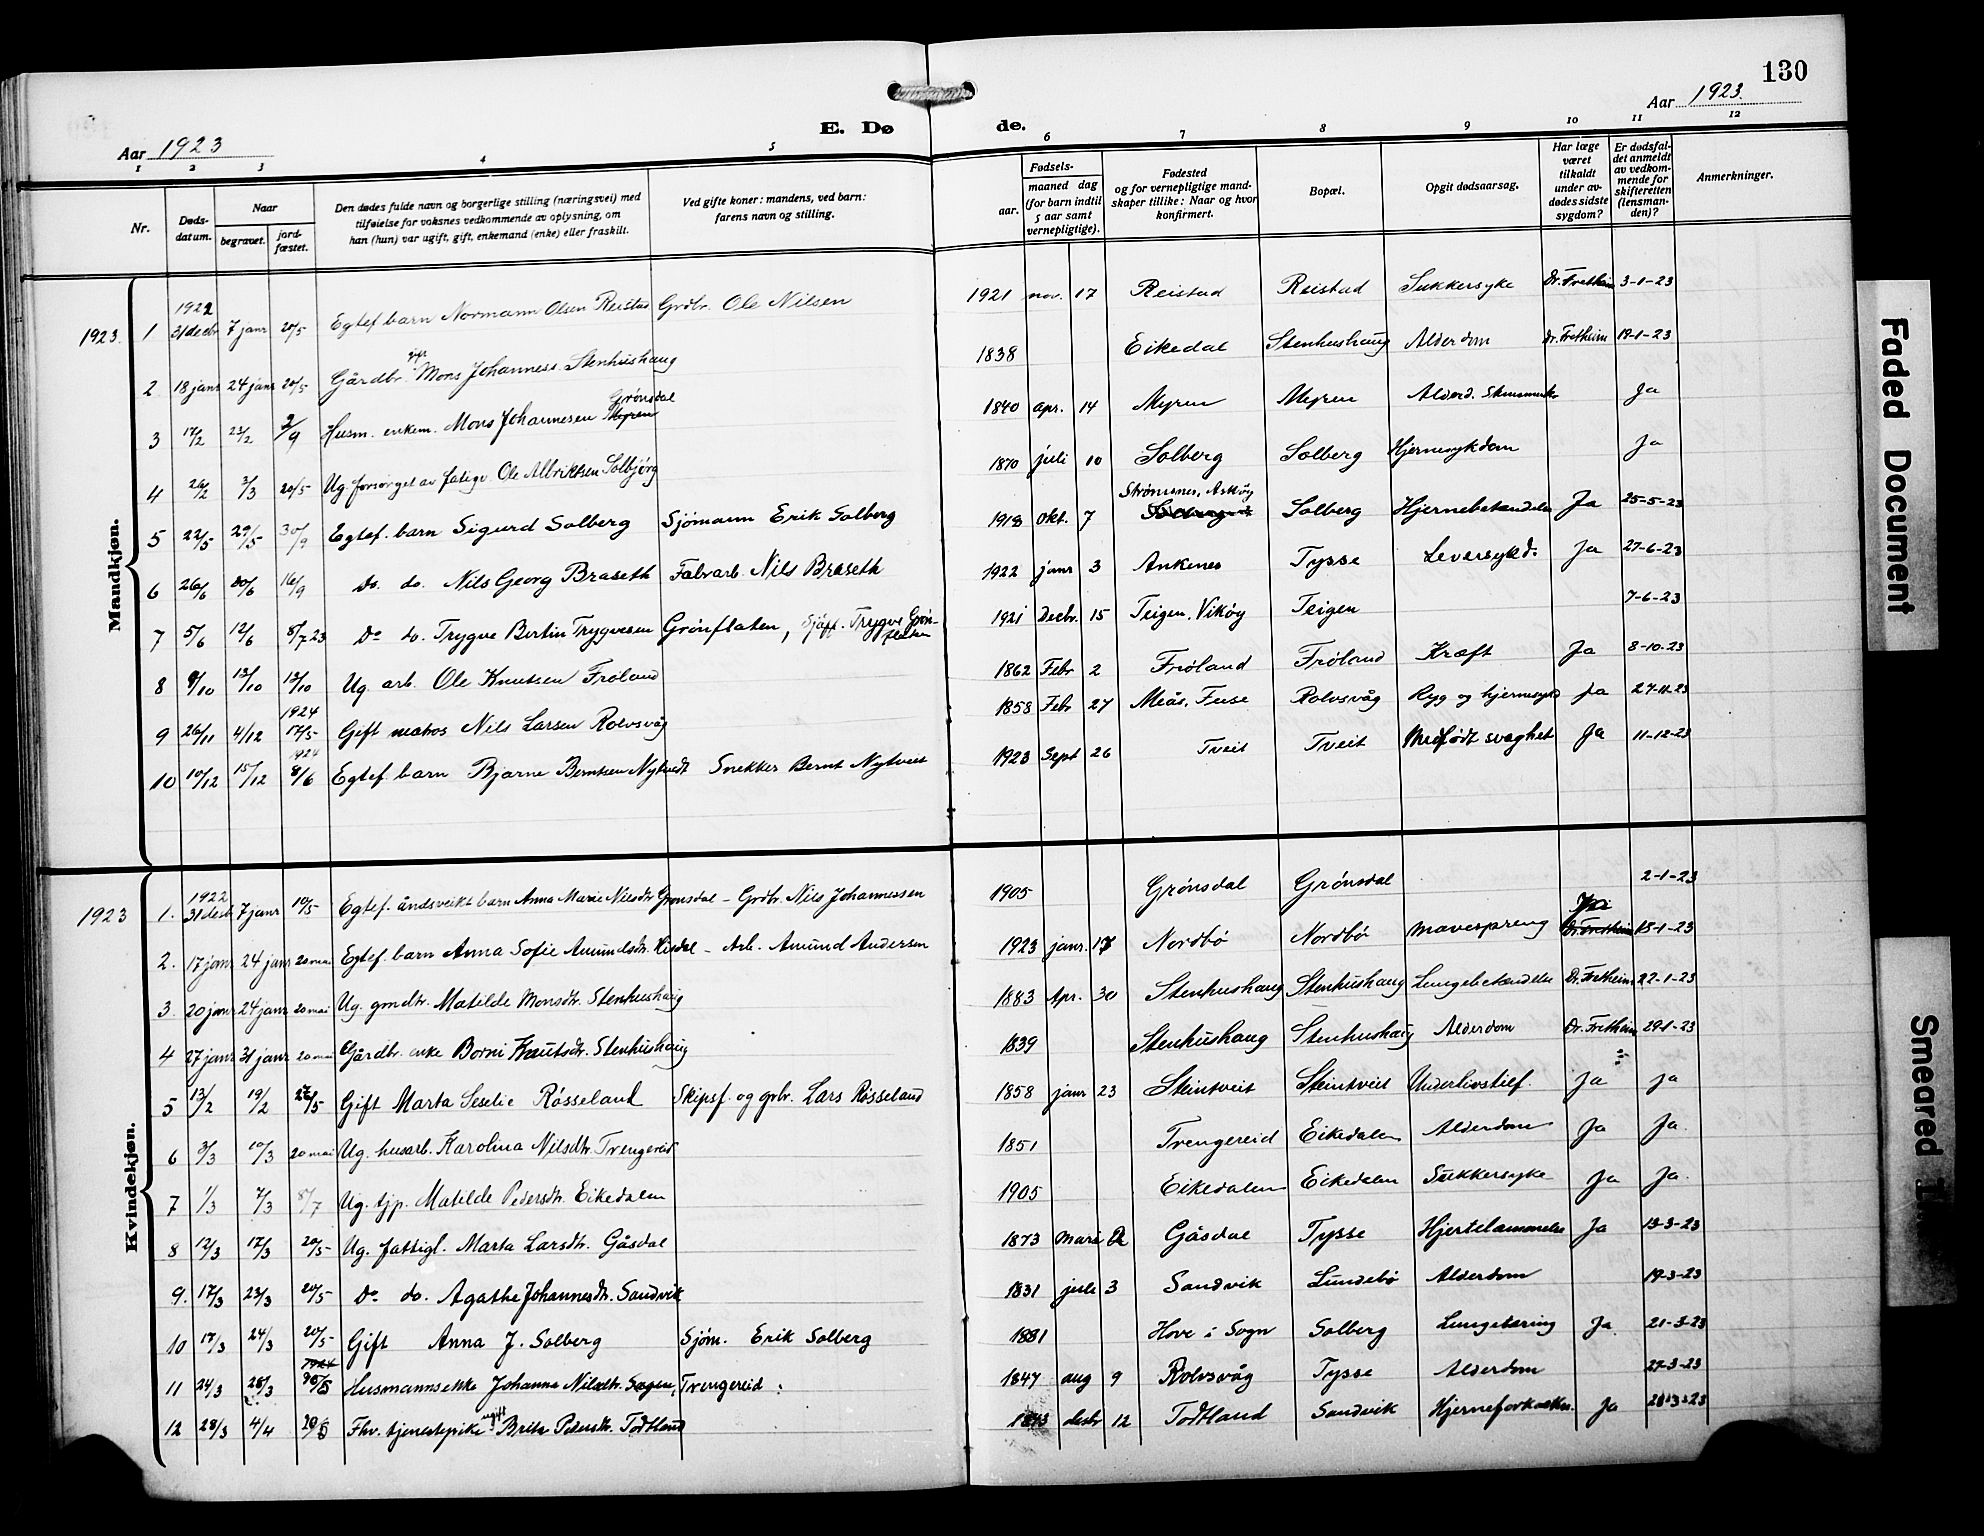 130
Aar 1923
E. Døde.
Aar 1923.
1 2 3 4 5 6 7 8 9 10 11 12
Nr.
Døds-datum.
Naar
begravet.
jord-fæstet.
Den dødes fulde navn og borgerlige stilling (næringsvei) med tilføielse for voksnes vedkommende av oplysning, om han (hun) var ugift, gift, enkemand (enke) eller fraskilt.
Ved gifte koner: mandens, ved barn: farens navn og stilling.
Fødsels-
aar.
maaned dag (for barn indtil 5 aar samt vernepligtige).
Fødested og for vernepligtige mandskaper tillike: Naar og hvor konfirmert.
Bopæl.
Opgit dødsaarsag.
Har læge været tilkaldt under avdødes sidste sygdom?
Er dødsfaldet anmeldt av vedkommende for skifteretten (lensmanden)?
Anmerkninger.
Mandkjøn.
1923. 1 1922 31 decbr 7 janr 20/5 Egtef. barn Normann Olsen Reistad Grdbr. Ole Nilsen 1921 nov. 17 Reistad Reistad Sukkersyke Dr. Fretheim 3-1-23
2 18 janr 24 janr 20/5 Gårdbr. Mons Johanness. Stenhushaug 1838 Eikedal Stenhushaug Alderdom Dr. Fretheim 19-1-23
3 17/2 23/2 2/9 Husm. enkem. Mons Johannesen Myren Grónsdal 1840 apr. 14 Myren Myren Alderd. Ja
4 26/2 3/3 20/5 Ug. forsörget av fatigv. Ole Albriktsen Solbjörg 1870 juli 10 Solberg Solberg Hjernesykdom Ja
5 22/5 29/5 30/9 Egtef. barn Sigurd Solberg Sjömann Erik Solberg 1918 Okt. 7 Strømsnes, Askøy Solberg Hjernebetændelse Ja 25-5-23
6 26/6 30/6 16/9 Do. do. Nils Georg Braseth Fabrarb. Nils Braseth 1922 janr 3 Ankenes Tysse Leversykd. Ja 27-6-23
7 5/6 12/6 8/7 23 Do do. Trygve Bertin Trygvesen Grönflaten, Sjåff. Trygve Grönflaten 1921 Decbr. 15 Teigen, Vikøy Teigen 7-6-23
8 8/10 13/10 13/10 Ug. arb. Ole Knutsen Fröland 1862 Febr 2 Fröland Fröland Kræft Ja 8-10-23
9 26/11 4/12 1924 17/5 Gift matros Nils Larsen Rolvsvåg 1858 Febr 27 Meås, Fuse Rolvsvåg Ryg og hjernesykd Ja 27-11-23
10 10/12 15/12 1924 8/6 Egtef. barn Bjarne Berntsen Nytvedt Snekker Bernt Nytveit 1923 Sept 26 Tveit Tveit Medfødt svaghet Ja 11-12-23
Kvindekjøn.
1923 1. 1922 31 decbr 7 janr 10/5 Egtef. åndsveikt barn Anna Marie Nilsdtr Grönsdal - Grdbr. Nils Johannessen 1905 Grónsdal Grónsdal 2-1-23
2. 17 janr 24 janr 20 mai Egtef. barn Anna Sofie Amundsdtr. Hisdal - Arb. Amund Andersen 1923 janr. 17 Nordbø Nordbø mavespreng Ja Dr. Fretheim 15-1-23
3. 20 janr 24 janr 20 mai Ug. grndtr. Matilde Monsdtr. Stenhushaug 1883 Apr. 30 Stenhushaug Stenhushaug Lungebetændelse Dr. Fretheim 22-1-23
4 27 janr 31 janr 20 mai Gårdbr. enke Borni Knutsdtr. Stenhushaug 1839 Stenhushaug Stenhushaug Alderdom Dr. Fretheim 29-1-23
5 13/2 19/2 /5 Gift Marta Seselie Rósseland Skipsf. og grbr. Lars Rósseland 1858 janr 23 Steintveit Steintveit Underlivstilf. Ja Ja
6 3/3 10/3 20 mai Ug. husarb. Karolina Nilsdtr. Trengereid 1851 Trengereid Eikedalen Alderdom Ja Ja.
7 1/3 7/3 8/7 Ug. tjp. Matilde Pedersdtr. Eikedalen 1905 Eikedalen Eikedalen Sukkersyke Ja Ja.
8 12/3 17/3 20/5 Ug. fattigl. Marta Larsdtr. Gåsdal 1873 mars Gåsdal Tysse Hjertelammelse Ja 13-3-23
9. 17/3 23/3 20/5 Do. do. Agathe Johannesdtr. Sandvik 1831 juli 3 Sandvik Lundebø Alderdom 19-3-23
10 17/3 24/3 20/5 Gift Anna J. Solberg Sjóm. Erik Solberg 1881 Hove i Sogn Solberg Lungetæring Ja 21-3-23
11 24/3 28/3 1924 /5 Husmannsekke Johanna Nilsdtr. Sagen, Trengereid 1847 aug 9 Rolvsvåg Tysse Alderdom 27-3-23
12 28/3 4/4 Fhv. tjenestepike ugift Brita Pedersdtr. Todtland decbr 12 Todtland Sandvik Ja 28-3-23
Faded Document
Smeared